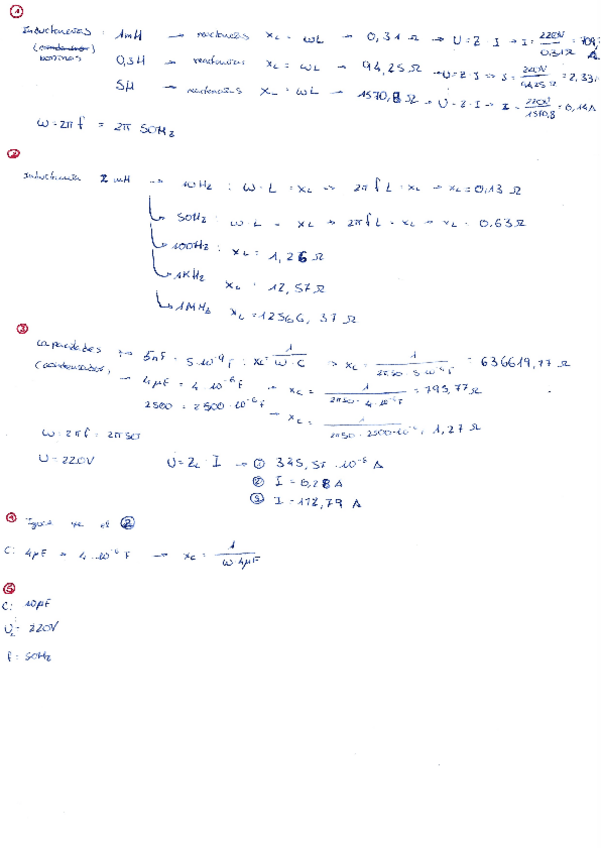 ①
Inductancias : 1mH → reactancias XL = ωL → 0,31 Ω → U = Z · I → I = 220V / 0,31Ω = 709, A
bobinas 0,3H → reactancias XL = ωL → 94,25 Ω → U = Z · I → I = 220V / 94,25 Ω = 2,33
5H → reactancias XL = ωL → 1570,8 Ω → U = Z · I → I = 220V / 1570,8 = 0,14A
ω = 2πf = 2π 50Hz
②
Inductancia 2 mH → 10Hz : ω · L = XL → 2πfL = XL → XL = 0,13 Ω
↳ 50Hz : ω · L = XL → 2πfL = XL → XL = 0,63Ω
↳ 100Hz : XL = 1,26 Ω
↳ 1KHz XL = 12,57Ω
↳ 1MHz XL = 12566,37 Ω
③
capacidades → 5nF = 5·10⁻⁹F : Xc = 1 / ω·C → Xc = 1 / 2π50 · 5·10⁻⁹F = 636619,77 Ω
(condensadores) → 4μF = 4·10⁻⁶F → Xc = 1 / 2π50 · 4·10⁻⁶F = 795,77Ω
2500 = 2500·10⁻⁶F → Xc = 1 / 2π50 · 2500·10⁻⁶ = 1,27 Ω
ω = 2πf = 2π50
U = 220V U = Zc · I → ① 345,57 · 10⁻⁶ A
② I = 0,28 A
③ I = 172,79 A
④ Igual que el ②
C: 4μF = 4·10⁻⁶ F → Xc = 1 / ω·4μF
⑤
C: 10μF
U = 220V
f: 50Hz